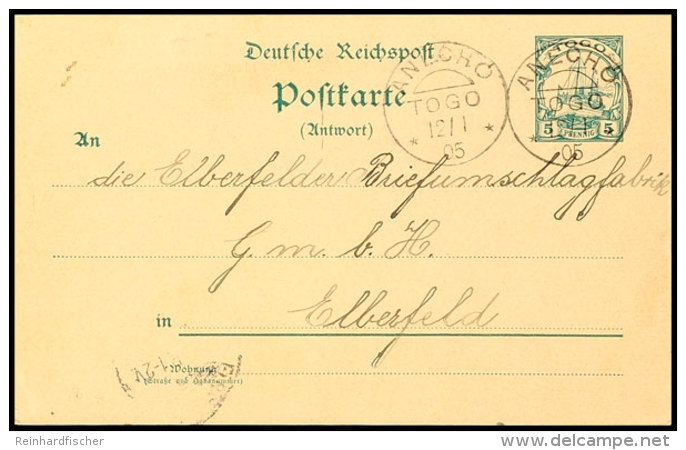 Deutsche Reichspost
Postkarte
(Antwort)
ANECHO
TOGO
12/1
05
TOGO
5 PFENNIG 5
ANECHO
TOGO
12/1
05
An
die Elberfelder Briefumschlagfabrik
G. m. b. H.
in Elberfeld
Wohnung
(Straße und Hausnummer)
1-2V
Reinhardfischer
delcampe.net